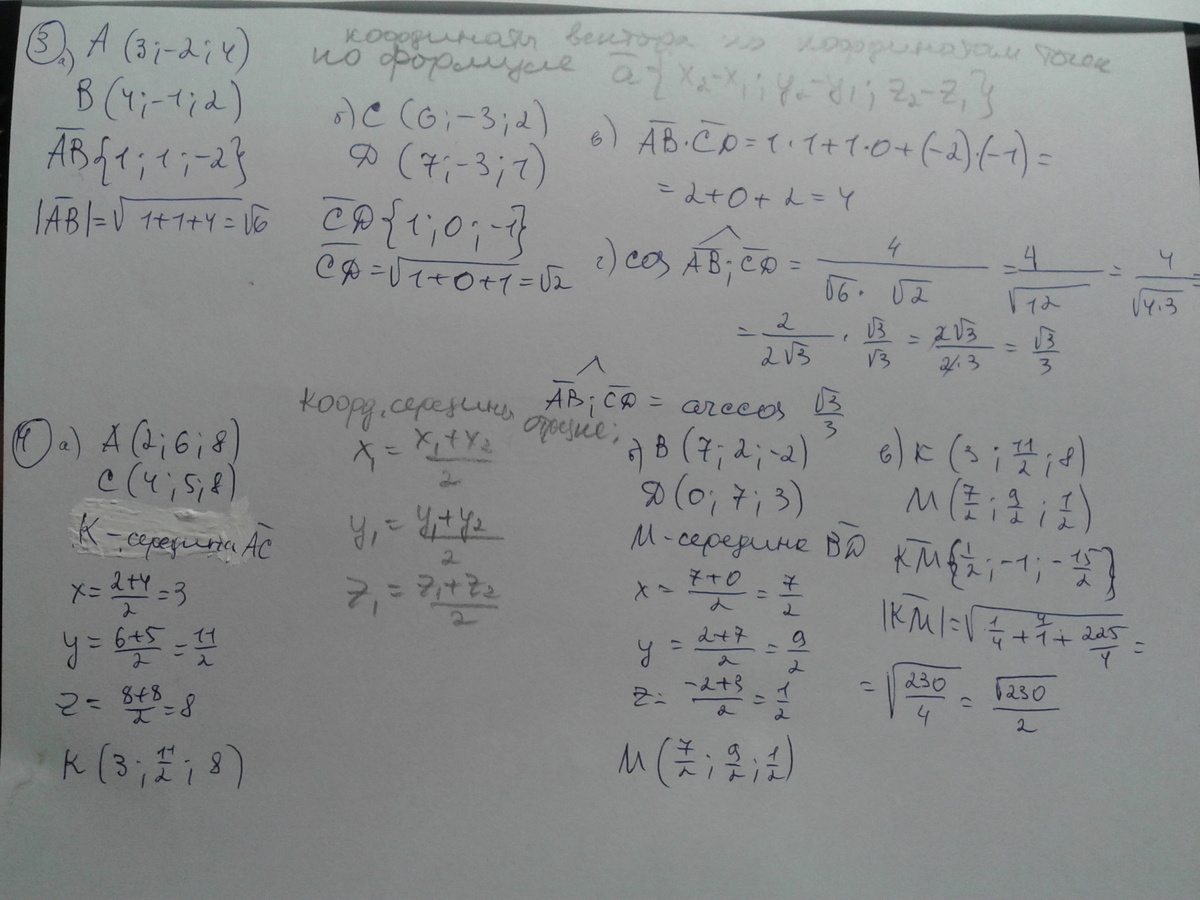 координаты вектора по координатам точек
по формуле a̅ {x₂-x₁; y₂-y₁; z₂-z₁}
③ а) A (3;-2;4)
B (4;-1;2)
A̅B̅{1; 1; -2}
|A̅B̅|=√(1+1+4)=√6
б) C (6;-3;2)
Д (7;-3;1)
C̅Д̅{1; 0; -1}
C̅Д̅=√(1+0+1)=√2
в) A̅B̅·C̅Д̅=1·1+1·0+(-2)·(-1)=
=2+0+2=4
г) cos A̅B̅;^C̅Д̅ = 4/(√6·√2) = 4/√12 = 4/√(4·3) =
= 2/(2√3) · √3/√3 = 2√3/(2·3) = √3/3
A̅B̅;^C̅Д̅ = arccos √3/3
④ а) A (2;6;8)
C (4;5;8)
K-середина A̅C̅
x= (2+4)/2 =3
y= (6+5)/2 = 11/2
z= (8+8)/2 =8
K (3; 11/2; 8)
Коорд. середины
x₁= (x₁+x₂)/2
y₁= (y₁+y₂)/2
z₁= (z₁+z₂)/2
б) B (7;2;-2)
Д (0; 7; 3)
M-середина B̅Д̅
x= (7+0)/2 = 7/2
y= (2+7)/2 = 9/2
z= (-2+3)/2 = 1/2
M (7/2; 9/2; 1/2)
в) K (3; 11/2; 8)
M (7/2; 9/2; 1/2)
K̅M̅{1/2; -1; -15/2}
|K̅M̅|=√(1/4 + 4/1 + 225/4) =
= √(230/4) = √230/2